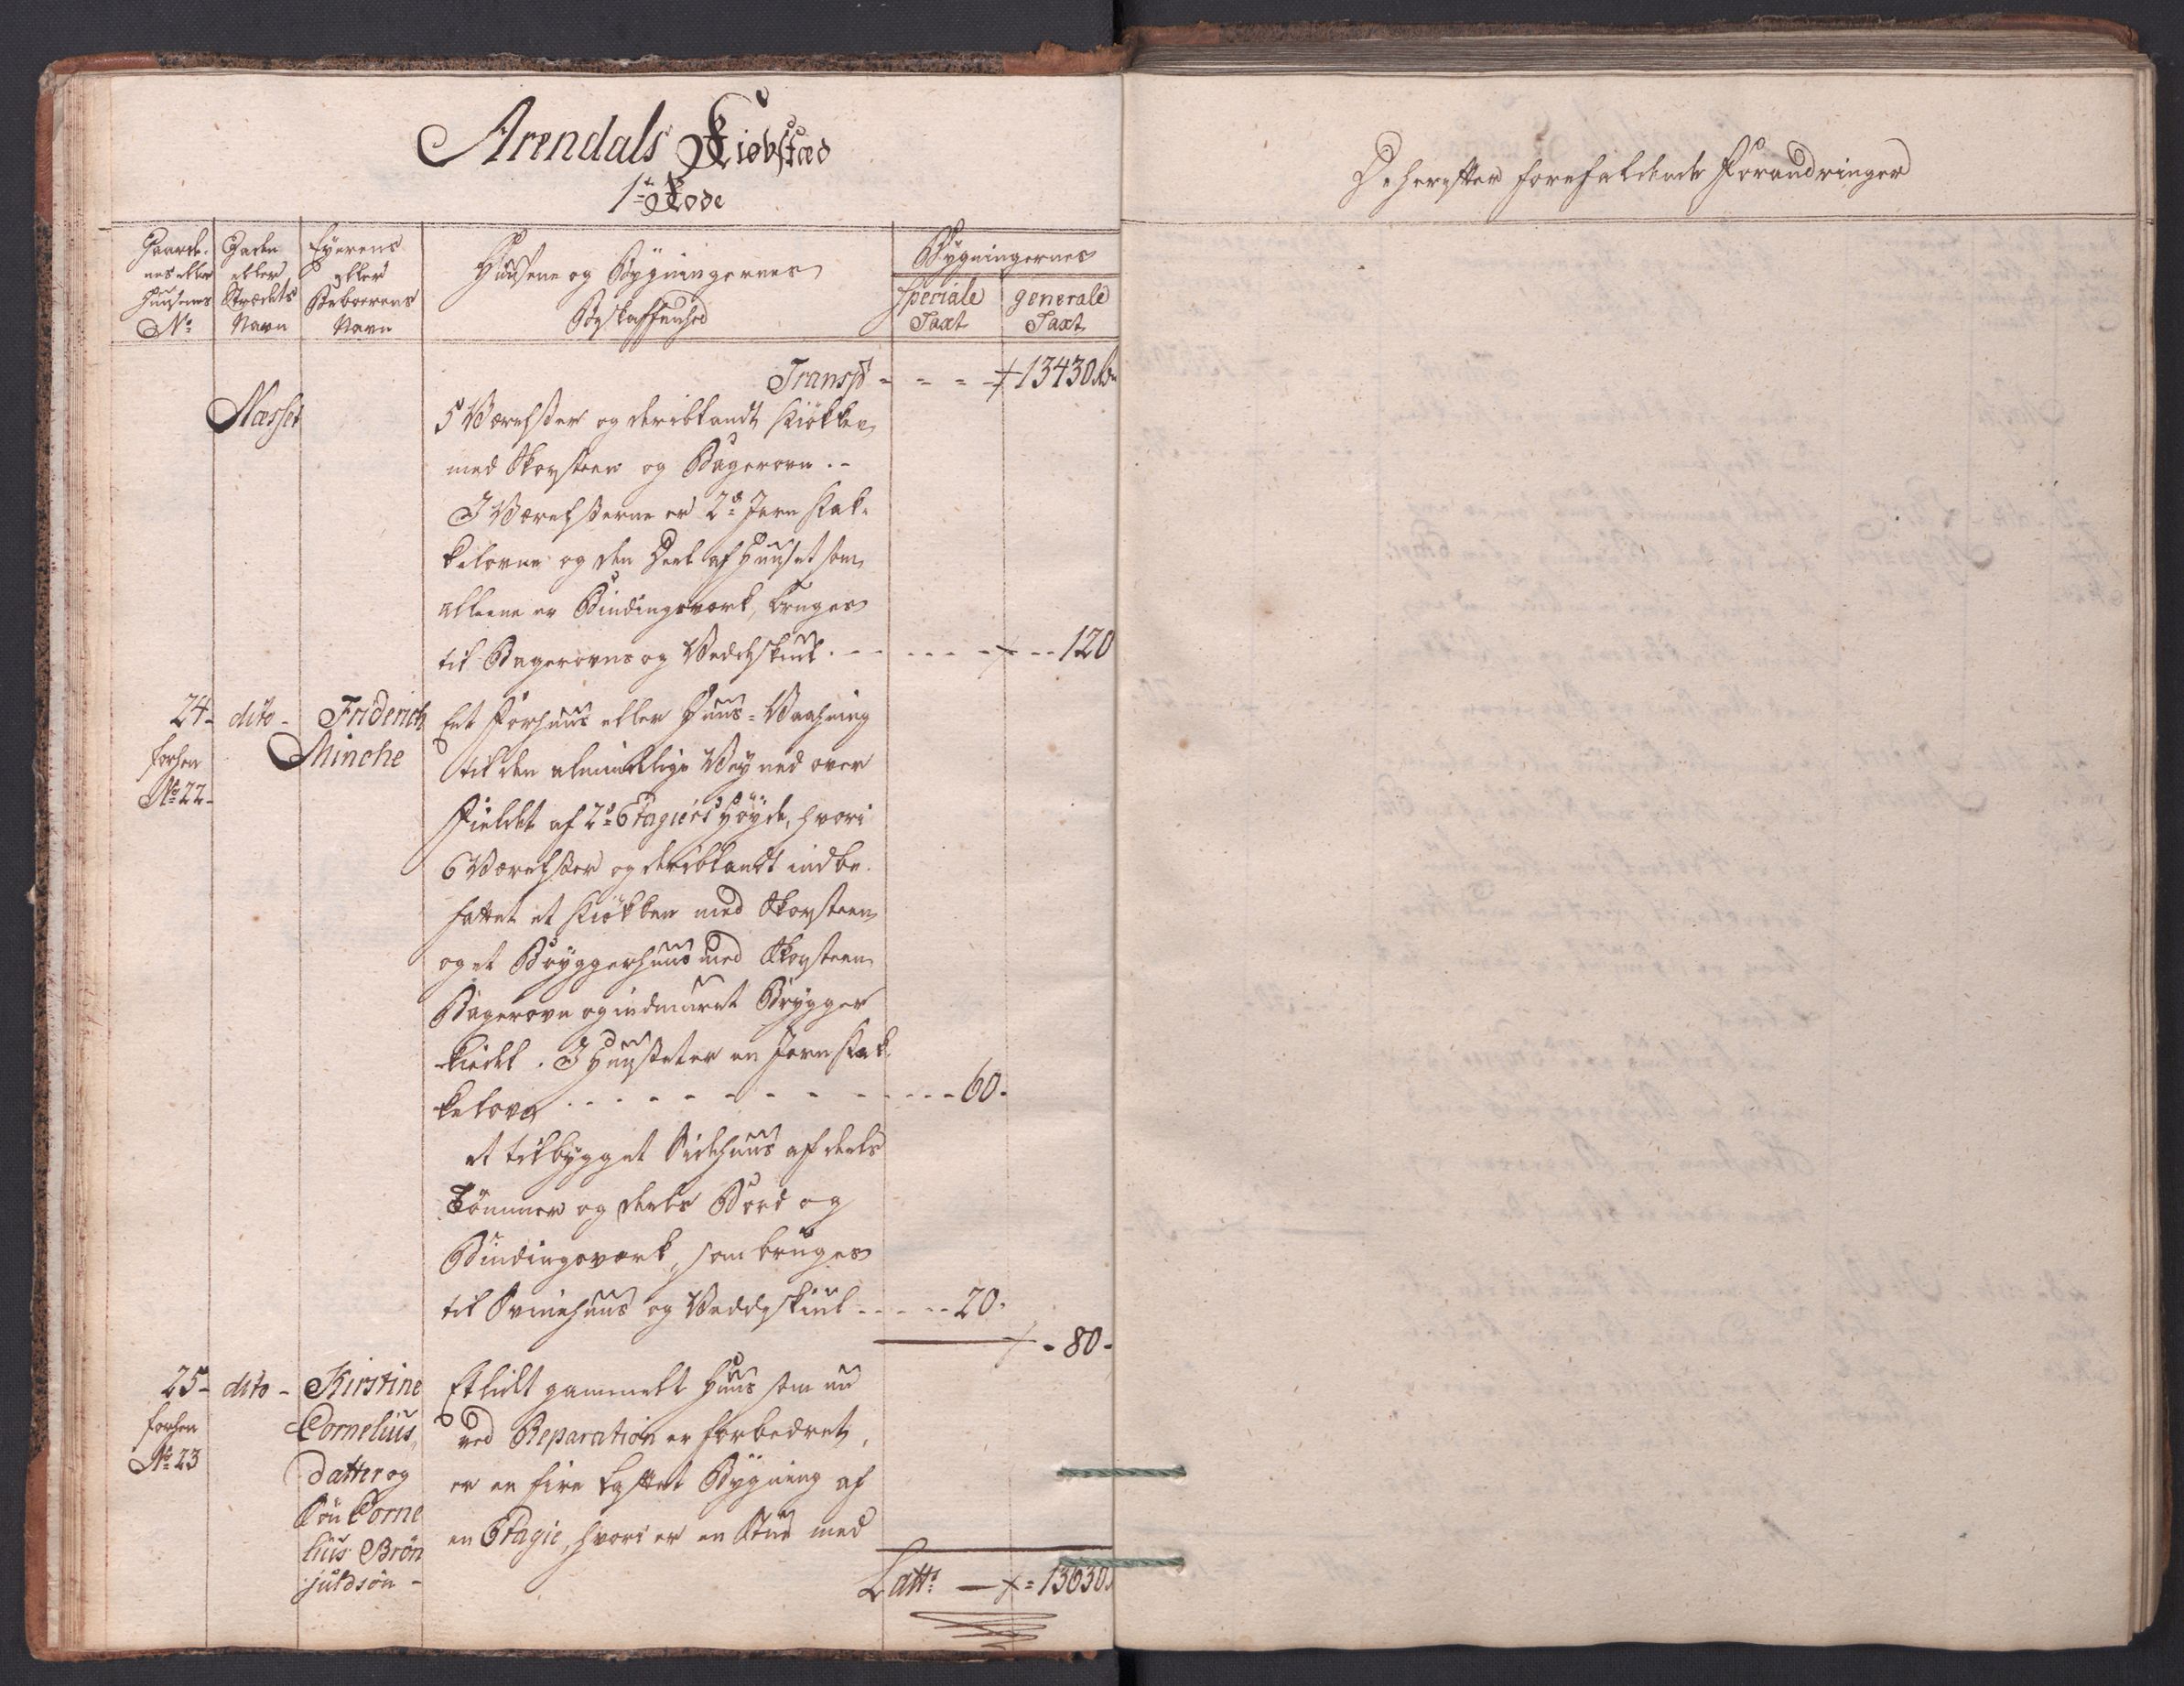 Arendals Kiøbstæd
1te Rode
Gaarde-
nes eller
Huusenes
No
Gaden
eller
Strædets
Navn
Eyerens
eller
Beboerens
Navn
Huusene og Bygningernes
Beskaffenhed
Bygningernes
speciale
Taxt
generale
Taxt
Transpt - - - - 13430 Rdr
Næsset
5 Værelser og deriblandt Kiökken
med Skorsteen og Bagerovn. -
I Værelserne er 2de Jern Kak-
kelovne og den Deel af Huuset som
alleene er Bindingsverk, bruges
til Bagerovns og Vedeskiul. - - - - - - 120
24 -
forhen
No 22 -
dito -
Friderich
Minche
Eet Forhuus eller Huus-Vaahning
til den almindelige Vey ned over
Fieldet af 2de Etagiers Höyde, hvori
6 Værelser og deriblandt indbe-
fattet et Kiökken med Skorsteen
og et Bryggerhuus med Skorsteen
Bagerovn og indmuret Brygger
kiedel. I Huuset er en Jern Kak-
kelovn - - - - - - - - 60 -
et tilbygget Sidehuus af deels
Tömmer og deels Bord og
Bindingsværk, som bruges
til Svinehuus og Veddeskiul - - - - 20 -
- 80 -
25 -
forhen
No 23
dito -
Kirstine
Cornelius
datter og
Sön Corne
lius Brön
juldsön -
Et lidt gammelt Huus som nu
ved Reparation er forbedret,
er en fire kantet Bygning af
en Etagie, hvori er en Stue med
Latts — 13630
De herefter forefaldende Forandringer